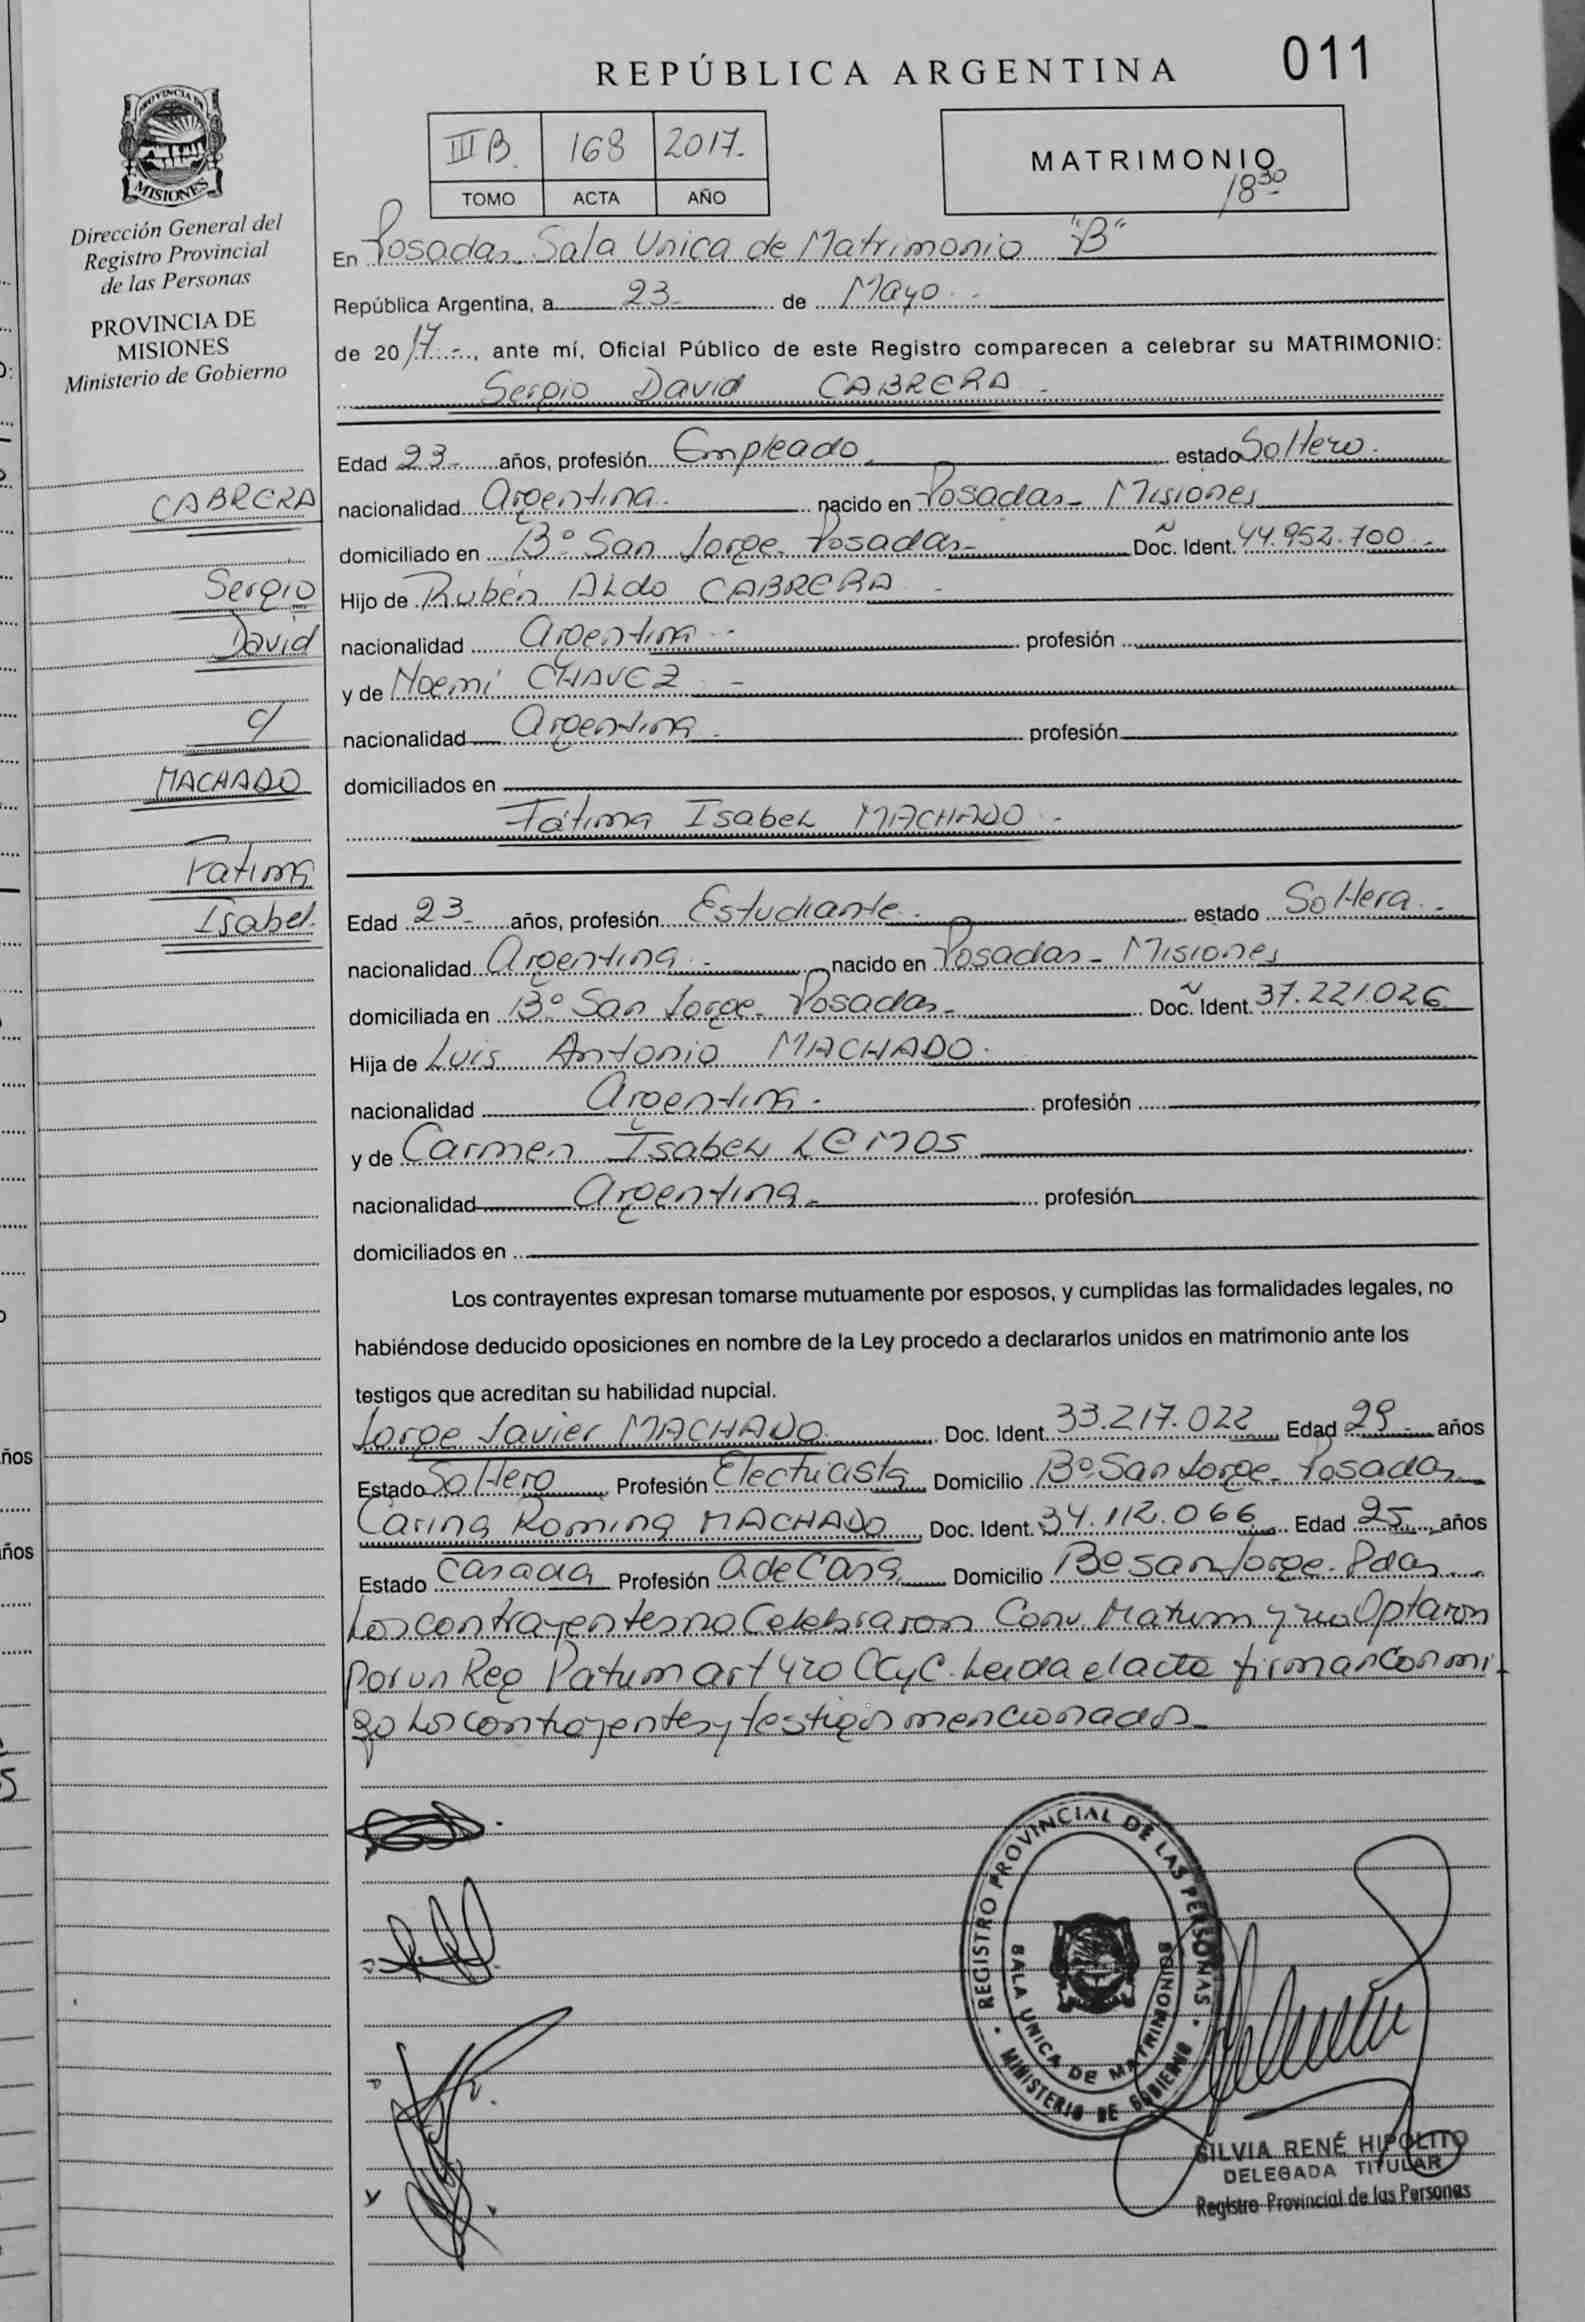 REPÚBLICA ARGENTINA
011
PROVINCIA DE
MISIONES
Dirección General del
Registro Provincial
de las Personas
PROVINCIA DE
MISIONES
Ministerio de Gobierno
III B. 168 2017.
TOMO ACTA AÑO
MATRIMONIO
18 30
En Posadas. Sala Unica de Matrimonio "B"
República Argentina, a 23 de Mayo
de 2017, ante mí, Oficial Público de este Registro comparecen a celebrar su MATRIMONIO:
Sergio David CABRERA
Edad 23 años, profesión Empleado estado Soltero.
nacionalidad Argentina. nacido en Posadas - Misiones
domiciliado en Bº San Jorge. Posadas Doc. Ident. 44.952.700
Hijo de Rubén ALdo CABRERA
nacionalidad Argentina profesión
y de Noemí CHAVEZ
nacionalidad Argentina profesión
domiciliados en
CABRERA
Sergio
David
c/
MACHADO
Fatima
Isabel.
Fátima Isabel MACHADO
Edad 23 años, profesión Estudiante estado Soltera
nacionalidad Argentina nacido en Posadas - Misiones
domiciliada en Bº San Jorge - Posadas Doc. Ident. 37.221.026
Hija de Luis Antonio MACHADO.
nacionalidad Argentina. profesión
y de Carmen Isabel LEMOS
nacionalidad Argentina profesión
domiciliados en
Los contrayentes expresan tomarse mutuamente por esposos, y cumplidas las formalidades legales, no
habiéndose deducido oposiciones en nombre de la Ley procedo a declararlos unidos en matrimonio ante los
testigos que acreditan su habilidad nupcial.
Jorge Javier MACHADO Doc. Ident. 33.217.022 Edad 29 años
Estado Soltero Profesión Electricista Domicilio Bº San Jorge - Posadas
Carina Romina MACHADO Doc. Ident. 34.112.066 Edad 25 años
Estado Casada Profesión A de Casa Domicilio Bº San Jorge. Pdas
Los contrayentes no Celebraron Conv. Matrim y no Optaron
por un Reg Patrim art 420 CCyC. Leida el acta firman conmi
go los contrayentes y testigos mencionados
REGISTRO PROVINCIAL DE LAS PERSONAS
SALA UNICA DE MATRIMONIOS
MINISTERIO DE GOBIERNO
SILVIA RENÉ HIPOLITO
DELEGADA TITULAR
Registro Provincial de las Personas